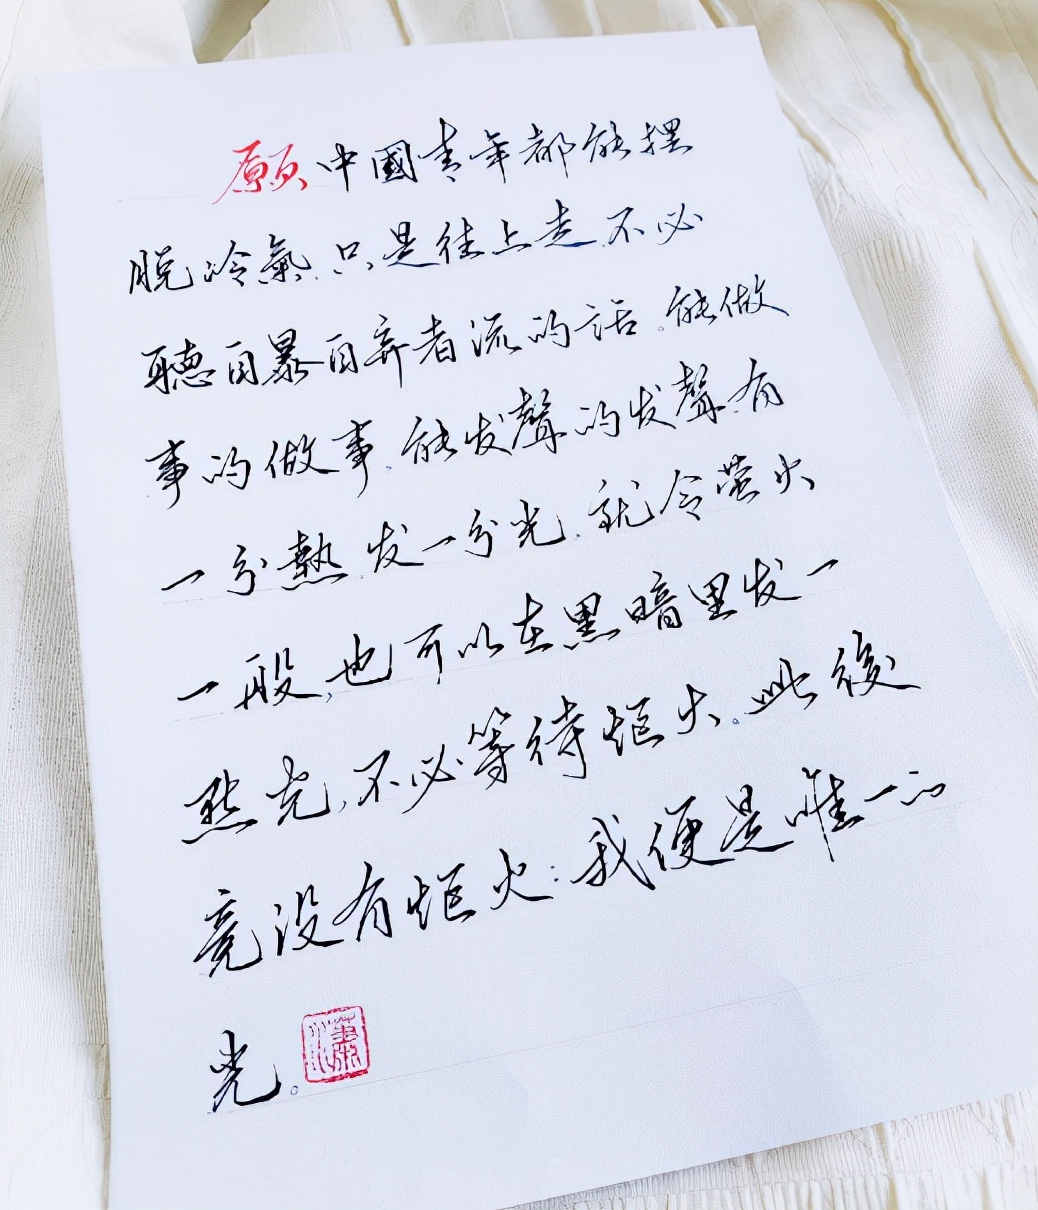 愿中國青年都能摆
脱冷氣,只是往上走,不必
聽自暴自弃者流的话。能做
事的做事,能发聲的发聲,有
一分熱,发一分光,就令萤火
一般,也可以在黑暗里发一
点光,不必等待炬火。此後
竟没有炬火:我便是唯一的
光。
瀟